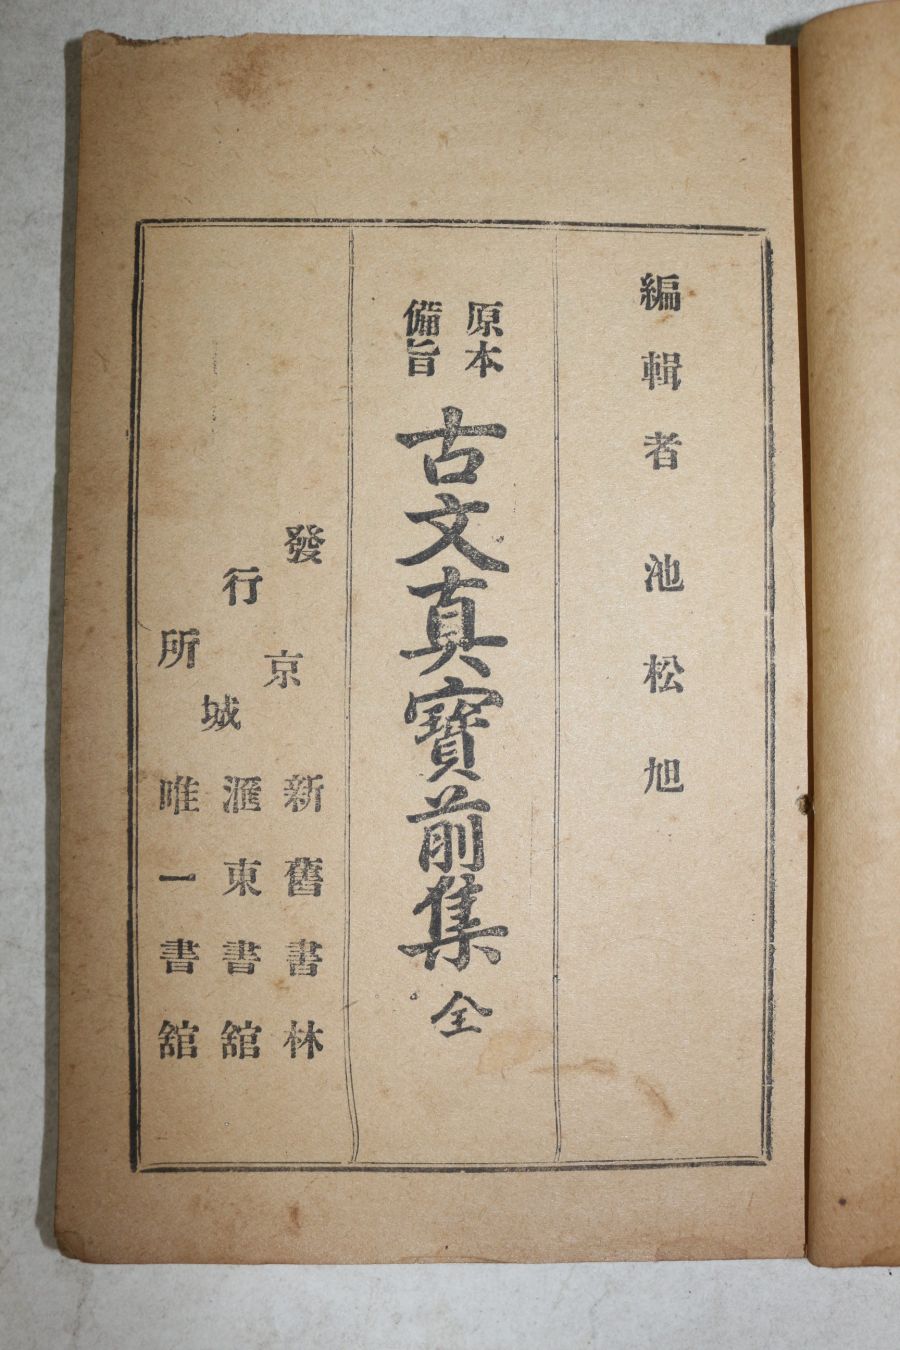 編輯者 池松旭
原本
備旨
古文真寶前集 全
發行所
京城
新舊書林
滙東書館
唯一書館